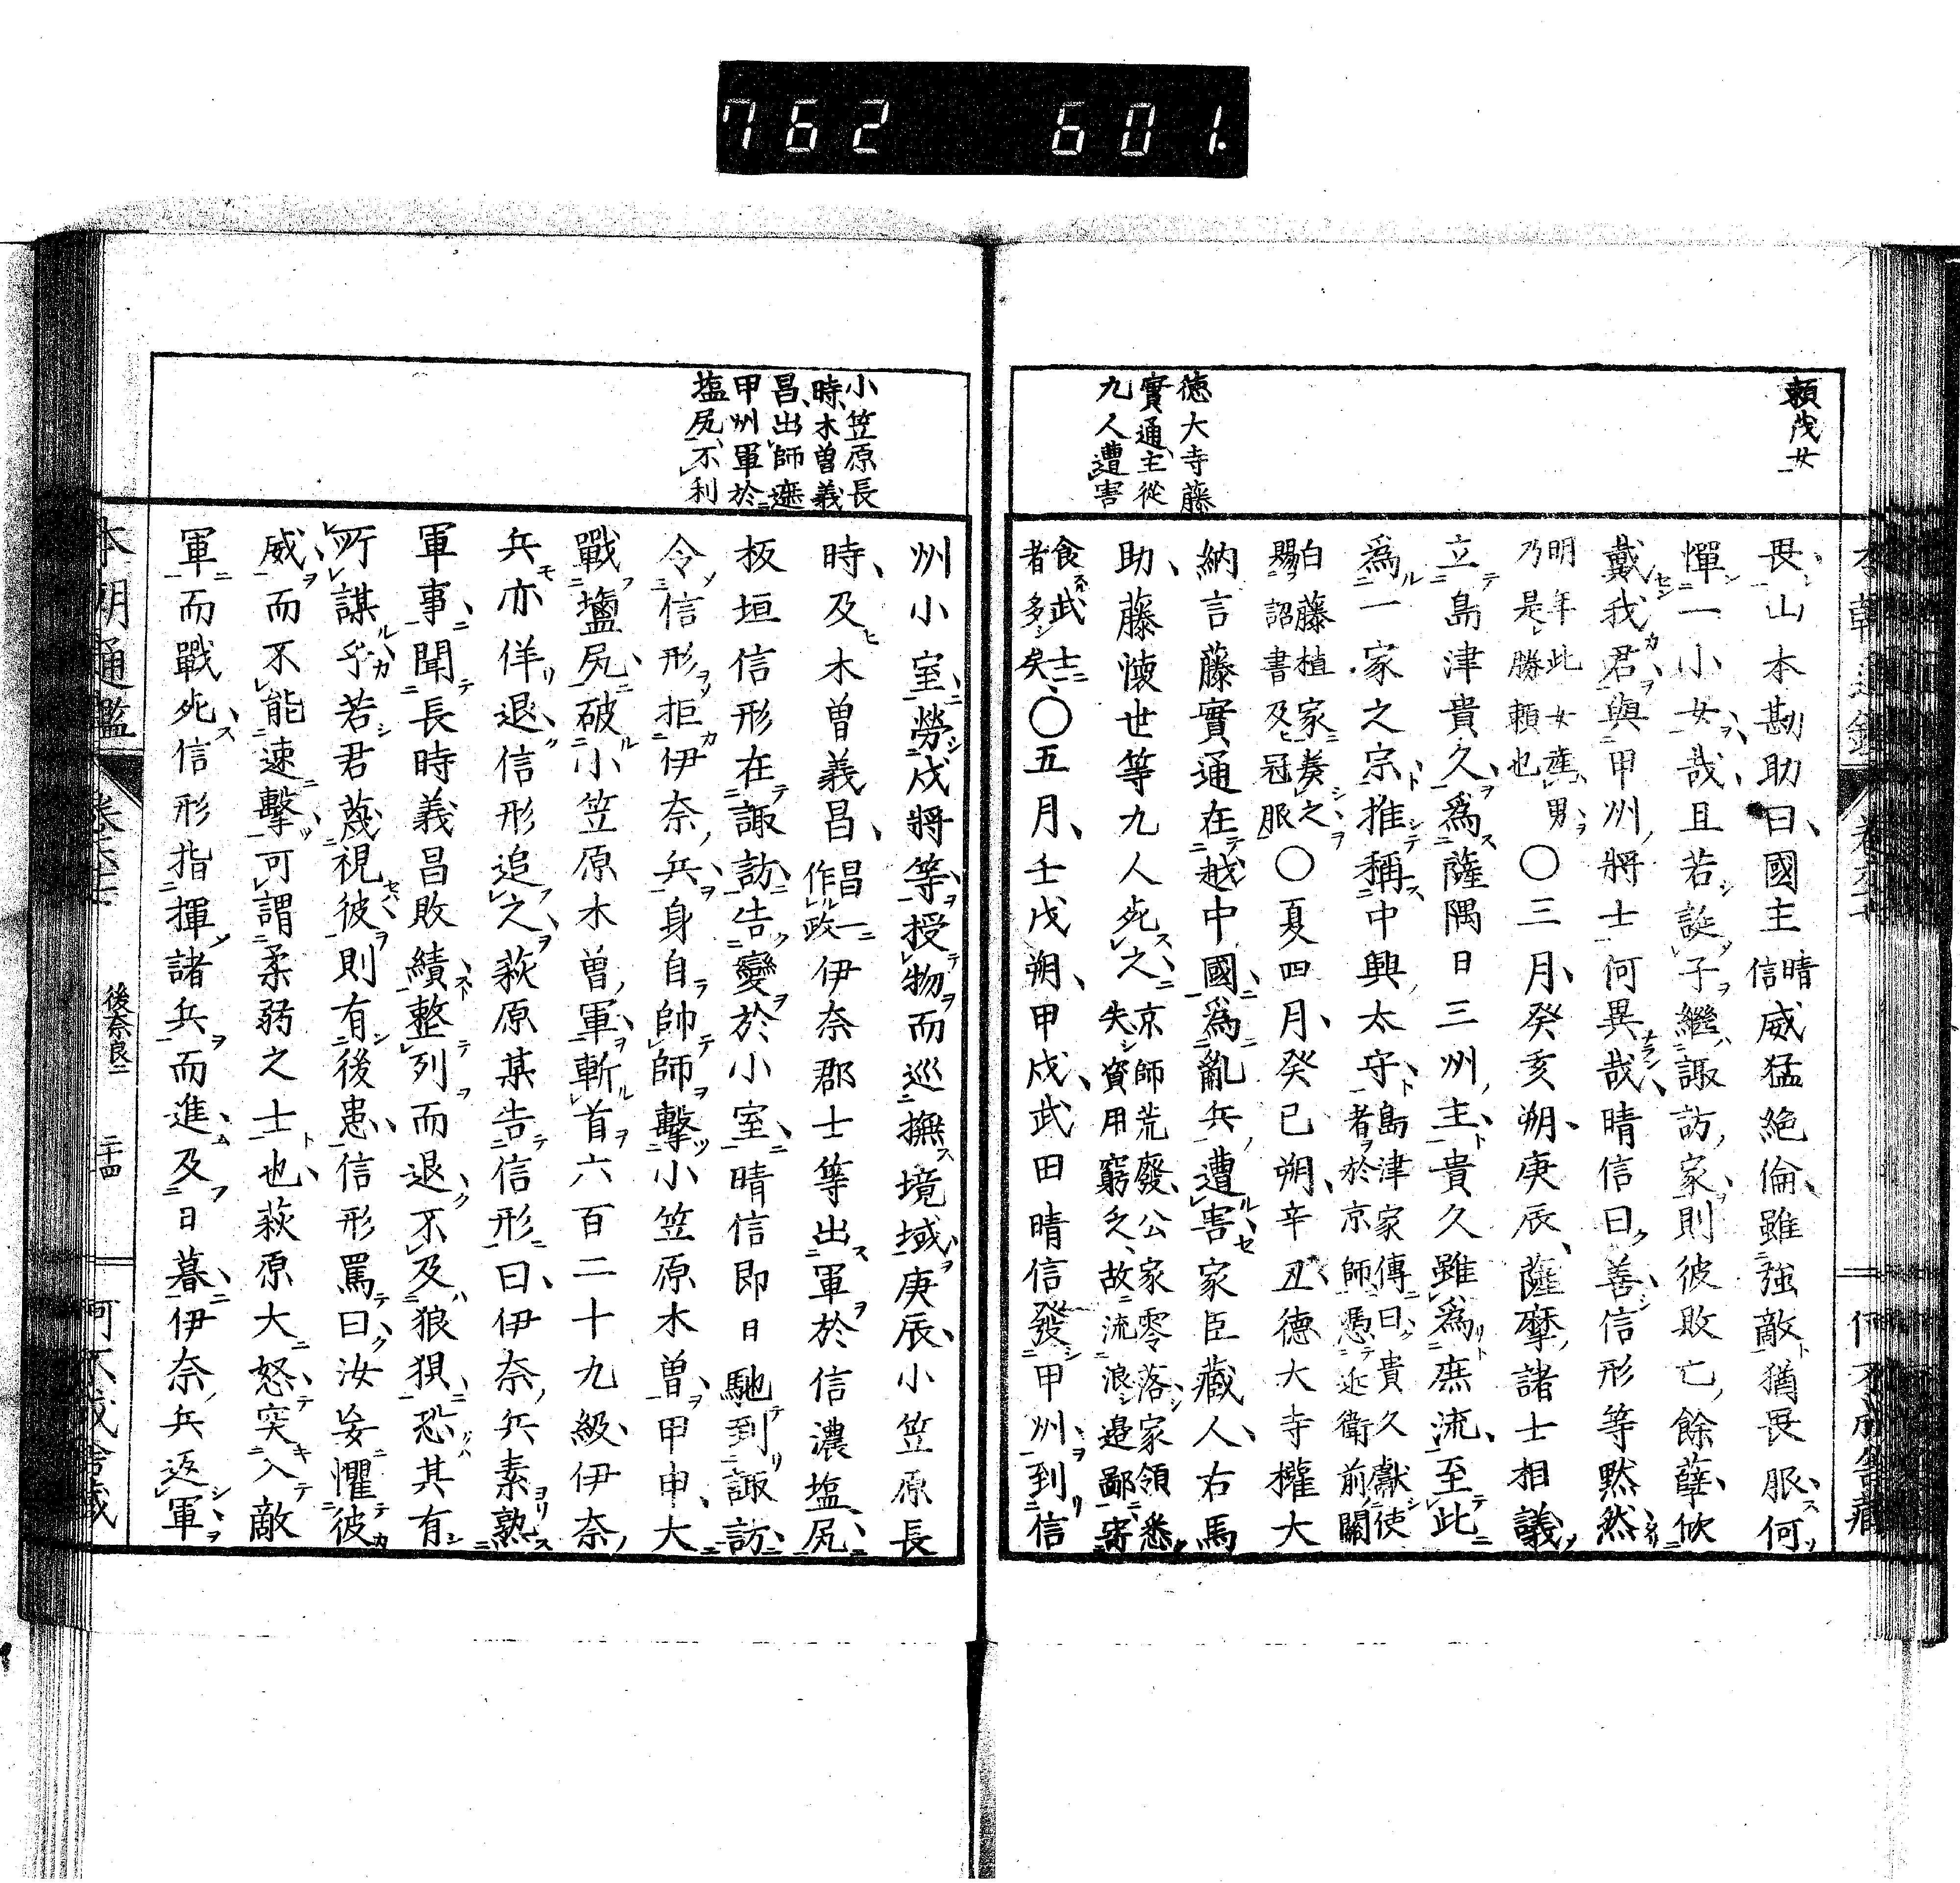 762 601.
賴茂女
畏山本勘助曰國主晴信威猛絶倫雖強敵猶畏服何
憚一小女哉且若誕子繼諏訪家則彼敗亡餘孽攸
戴我君與甲州將士何異哉晴信曰善信形等黙然
明年此女産男
乃是勝賴也〇三月癸亥朔庚辰薩摩諸士相議
立島津貴久爲薩隅日三州主貴久雖爲庶流至此
爲一家之宗推稱中興太守島津家傳曰貴久獻使
者於京師馮近衛前關
白藤植家奏之
賜詔書及冠服〇夏四月癸巳朔辛丑德大寺權大
納言藤實通在越中國爲亂兵遭害家臣藏人右馬
助藤懷世等九人死之京師荒廢公家零落家領悉
失資用窮乏故流浪邊鄙寄
食武士
者多矣〇五月壬戌朔甲戌武田晴信發甲州到信
德大寺藤
實通主從
九人遭害
州小室勞戍將等授物而巡撫境域庚辰小笠原長
時及木曽義昌昌一
作政伊奈郡士等出軍於信濃塩尻
板垣信形在諏訪告變於小室晴信即日馳到諏訪
令信形拒伊奈兵身自帥師擊小笠原木曽甲申大
戰塩尻破小笠原木曽軍斬首六百二十九級伊奈
兵亦佯退信形追之萩原某告信形曰伊奈兵素熟
軍事聞長時義昌敗績整列而退不及狼狽恐其有
所謀乎若君蔑視彼則有後患信形罵曰汝妄懼彼
威而不能速擊可謂柔弱之士也萩原大怒突入敵
軍而戰死信形指揮諸兵而進及日暮伊奈兵返軍
小笠原長
時木曽義
昌出師遮
甲州軍於
塩尻不利
本朝通鑑
後奈良二
二十四